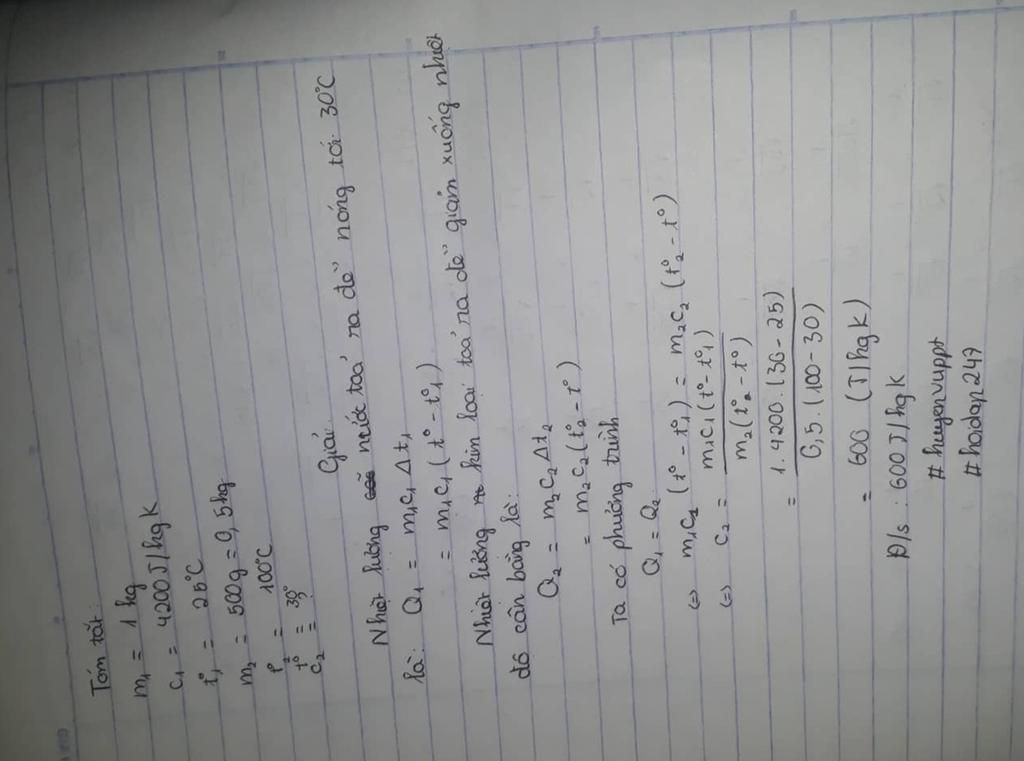 Tóm tắt:
m₁ = 1 kg
c₁ = 4200 J/kg K
t°₁ = 25°C
m₂ = 500g = 0,5 kg
t°₂ = 100°C
t° = 30°
c₂ =
Giải
Nhiệt lượng nước toả ra để nóng tới 30°C
là: Q₁ = m₁c₁Δt₁
= m₁c₁(t° - t°₁)
Nhiệt lượng kim loại toả ra để giảm xuống nhiệt
độ cân bằng là:
Q₂ = m₂c₂Δt₂
= m₂c₂(t°₂ - t°)
Ta có phương trình
Q₁ = Q₂
(=) m₁c₁(t° - t°₁) = m₂c₂(t°₂ - t°)
(=) c₂ = m₁c₁(t° - t°₁) / m₂(t°₂ - t°)
= 1.4200.(30-25) / 0,5.(100-30)
= 600 (J/kg K)
Đ/s: 600 J/kg K
#huyenvuppt
#hoidap247